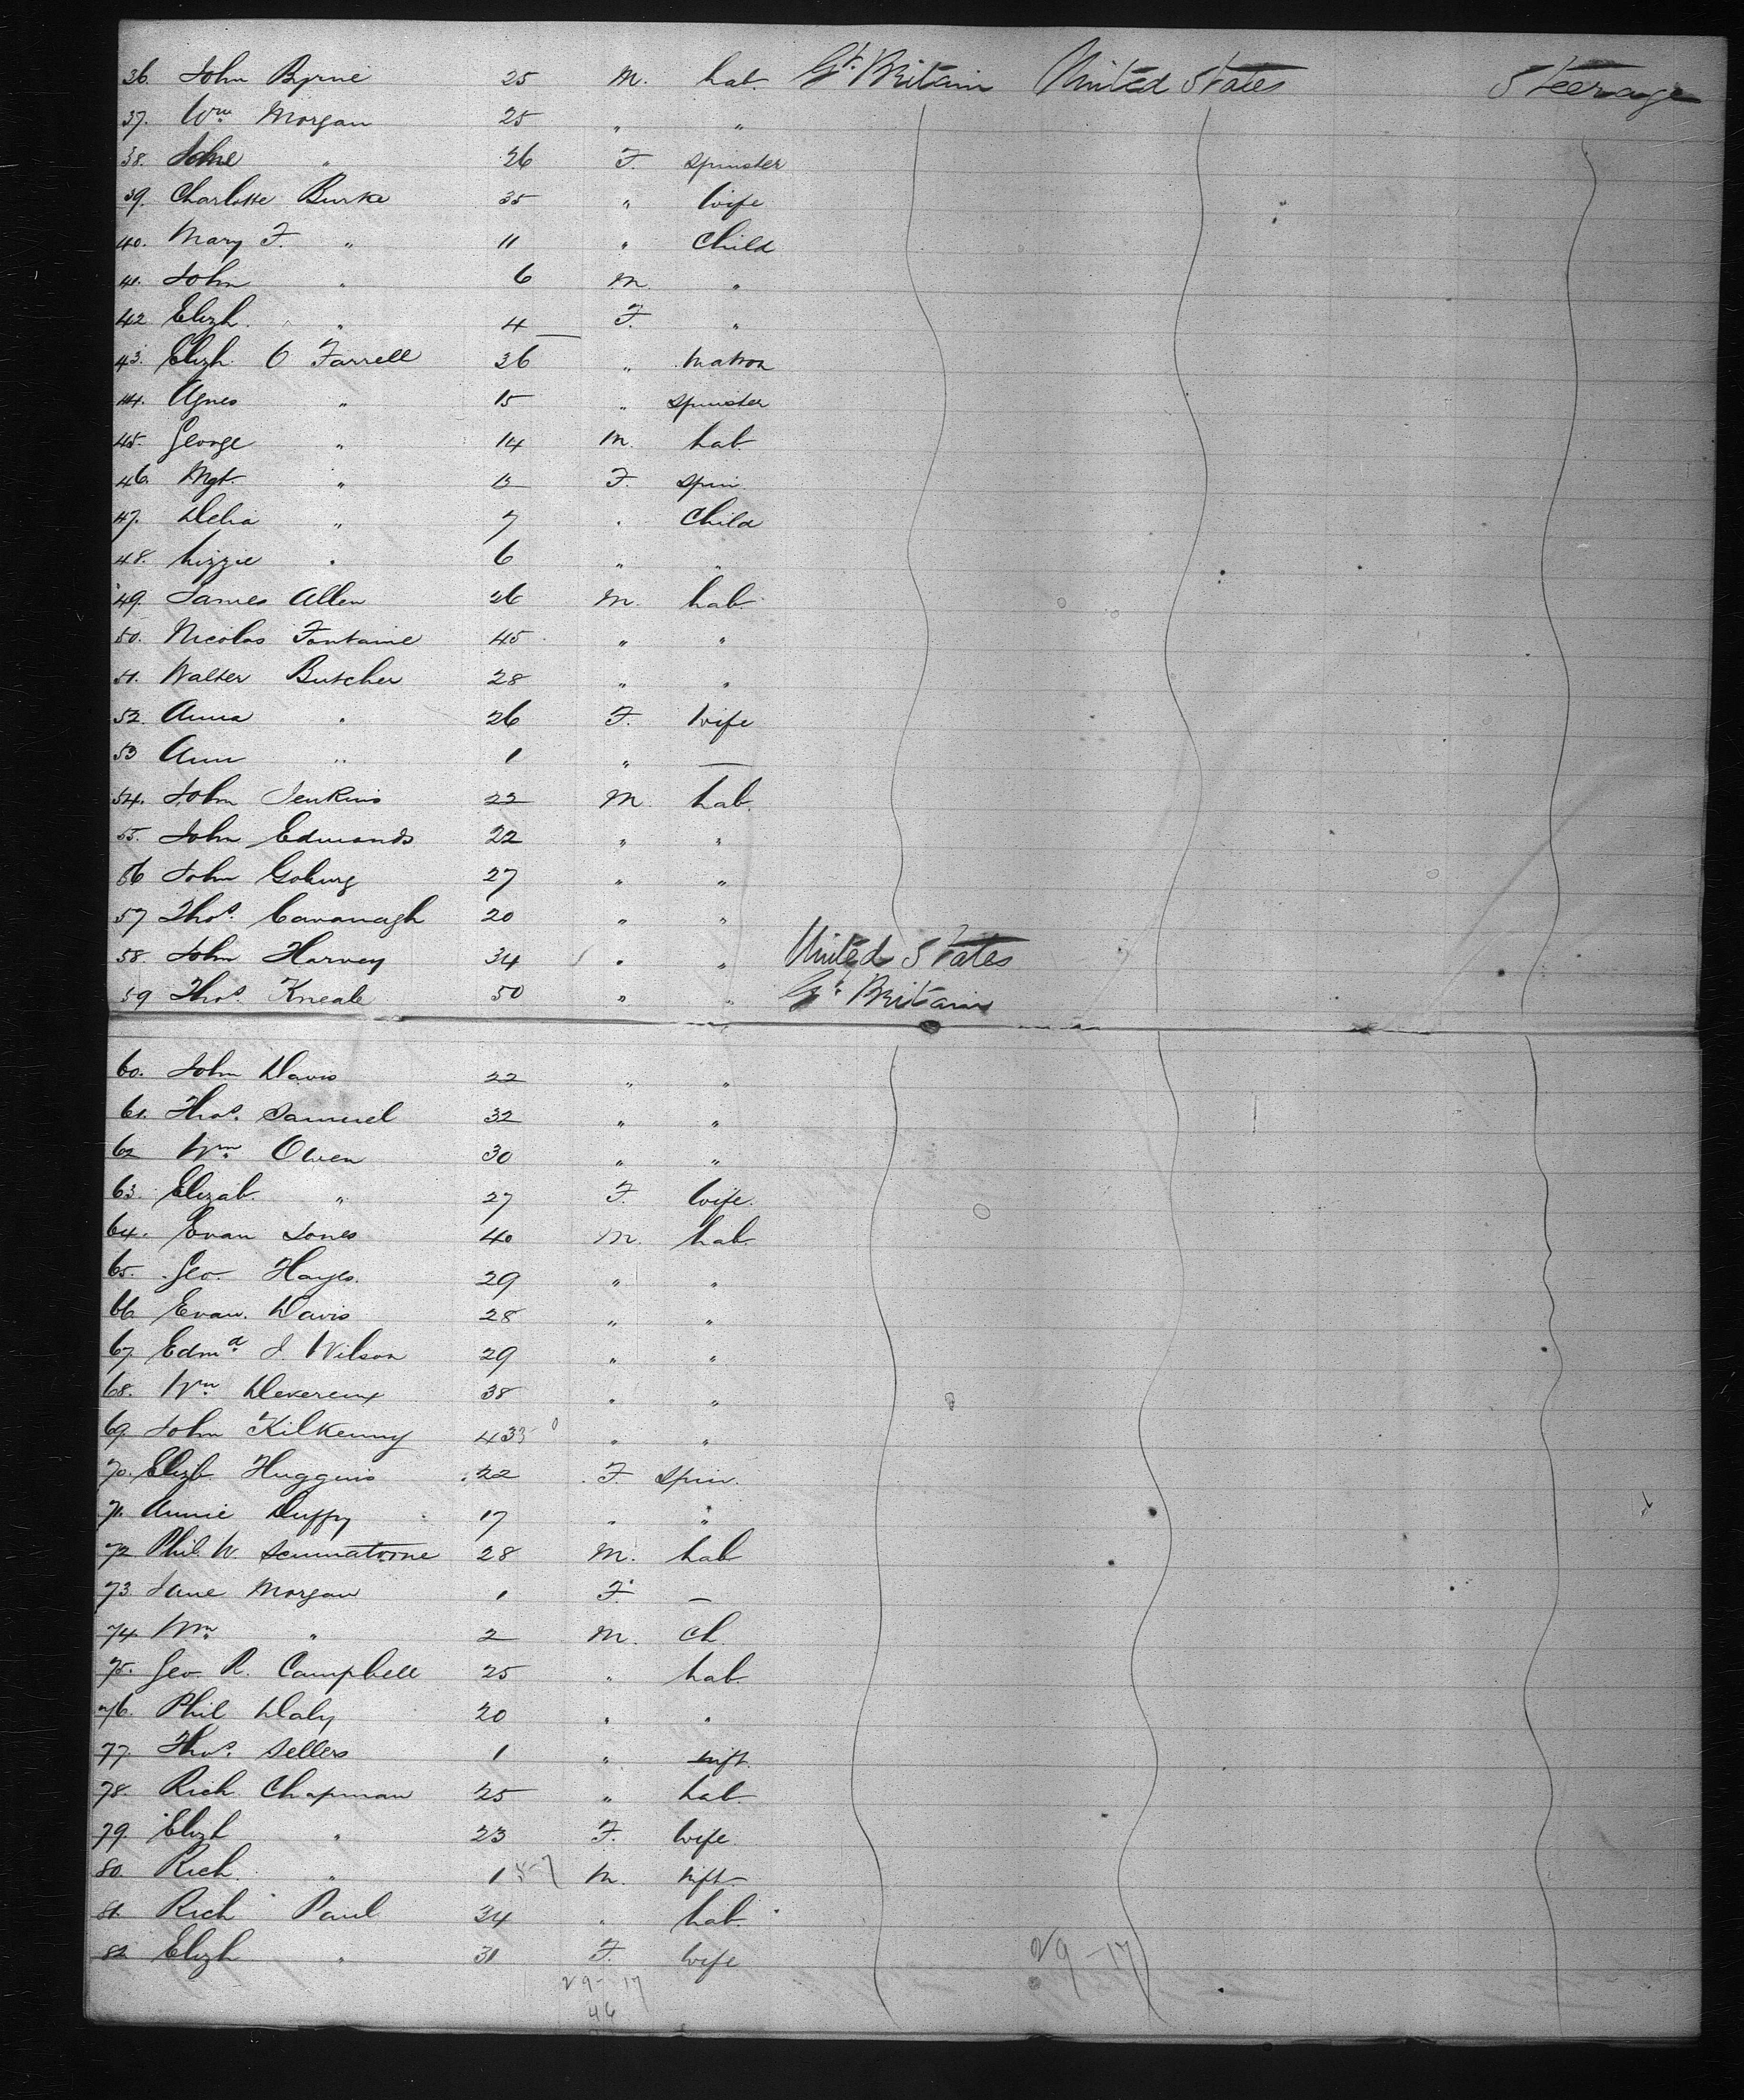 36. John Byrne 25 M. Lab. Gt. Britain United States Steerage
37. Wm Morgan 25 " "
38. Jane " 26 F. Spinster
39. Charlotte Burke 35 " Wife
40. Mary F. " 11 " Child
41. John " 6 M. "
42. Elizh. " 4 F. "
43. Elizh. O Farrell 36 " Matron
44. Agnes " 15 " Spinster
45. George " 14 M. Lab.
46. Mgt. " 13 F. Spin.
47. Delia " 7 " Child
48. Lizzie " 6 " "
49. James Allen 26 M. Lab.
50. Nicolas Fontaine 45 " "
51. Walter Butcher 28 " "
52. Anna " 26 F. Wife
53 Ann " 1 " —
54. John Jenkins 22 M. Lab.
55. John Edmonds 22 " "
56 John 27 " "
57 Thos. Cavanagh 20 " "
58. John Harvey 34 " " United States
59 Thos. Kneale 50 " " Gt. Britain
60. John Davis 22 " "
61. Thos. Samuel 32 " "
62 Wm. Owen 30 " "
63. Elizab. " 27 F. Wife.
64. Evan Jones 40 M. Lab.
65. Geo. Hayes. 29 " "
66. Evan. Davis 28 " "
67. Edmd. J. Wilson 29 " "
68. Wm. Devereux 38 " "
69. John Kilkenny " "
70. Elizb. Huggins 22 F. Spin.
71. Annie Duffy 17 " "
72 Phil. W. 28 M. Lab
73. Jane Morgan 1 F. —
74. Wm. " 2 M. Ch.
75. Geo. R. Campbell 25 " Lab.
76. Phil Daly 20 " "
77. Thos. Sellers 1 " Inft.
78. Rich. Chapman 25 " Lab.
79. Elizh " 23 F. Wife.
80. Rich. " 1 M. Inft.
81. Rich Paul 34 " Lab.
82 Elizh " 31 F. Wife
29-17 29-17
46